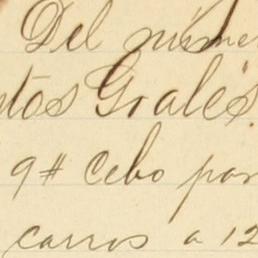 Del núme
tos Grales.
9# Cebo par
carros a 12